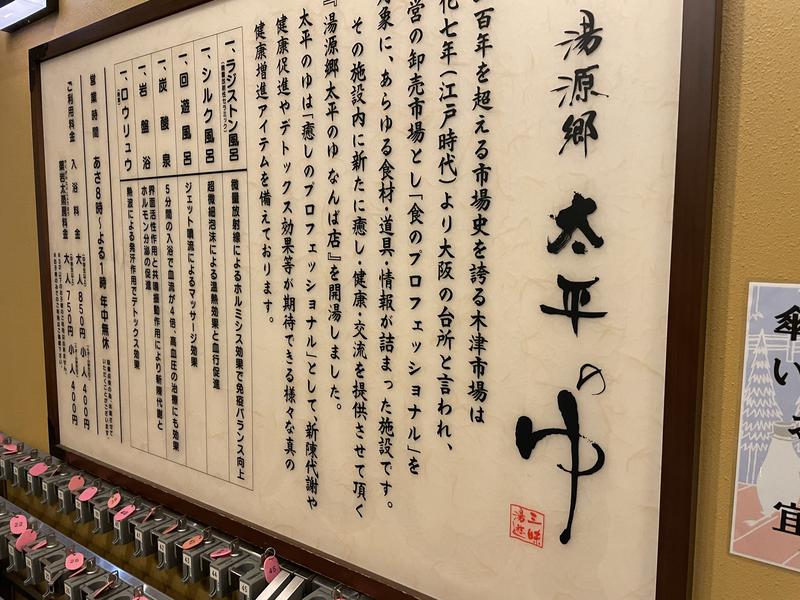 湯源郷 太平のゆ
百年を超える市場史を誇る木津市場は
化七年(江戸時代)より大阪の台所と言われ、
営の卸売市場とし「食のプロフェッショナル」を
対象に、あらゆる食材・道具・情報が詰まった施設です。
その施設内に新たに癒し・健康・交流を提供させて頂く
『湯源郷太平のゆ なんば店』を開湯しました。
太平のゆは「癒しのプロフェッショナル」として、新陳代謝や
健康促進やデトックス効果等が期待できる様々な真の
健康増進アイテムを備えております。
一、ラジストン風呂 微量放射線によるホルミシス効果で免疫バランス向上
一、シルク風呂 超微細泡沫による温熱効果と血行促進
一、回遊風呂 ジェット噴流によるマッサージ効果
一、炭酸泉 5分間の入浴で血流が4倍、高血圧の治療にも効果
一、岩盤浴 界面活性作用と共鳴振動作用により新陳代謝と
ホルモン分泌の促進
一、ロウリュウ 熱波による発汗作用でデトックス効果
営業時間 あさ8時〜よる1時 年中無休
ご利用料金 入浴料金 大人850円 小人400円
大人750円 小人400円
傘
い
宜
22
26
42
44
45
45